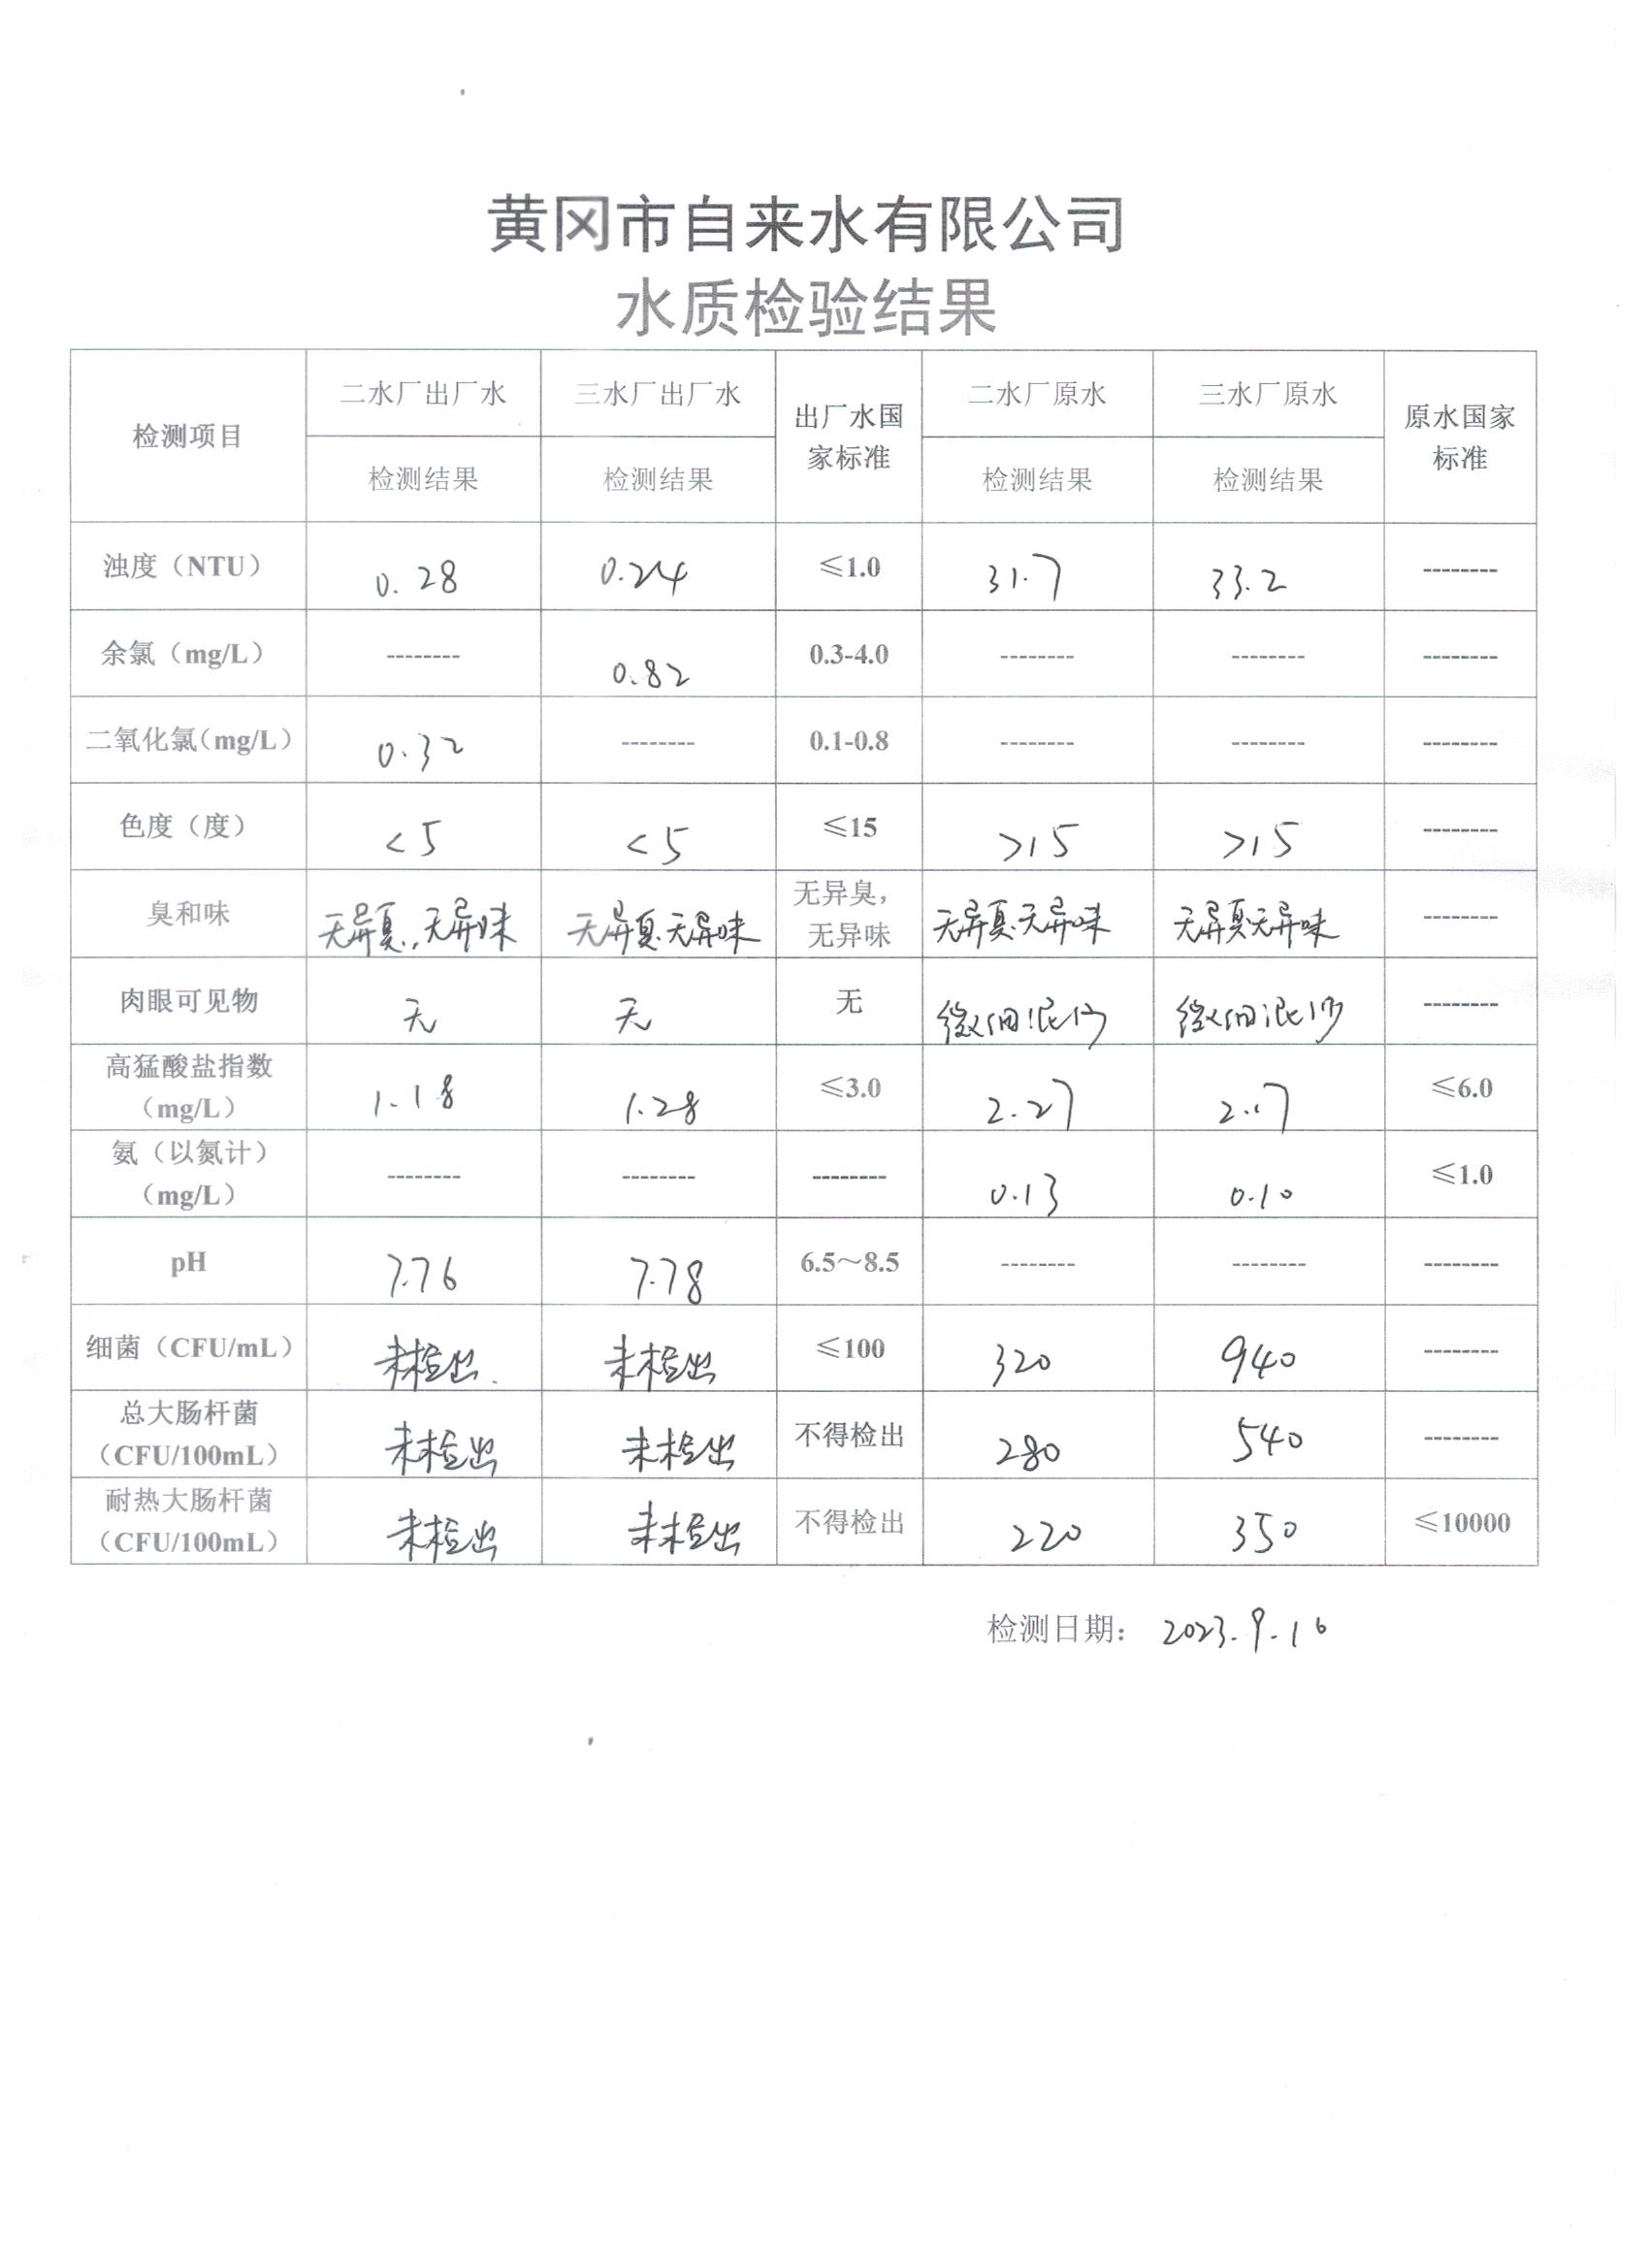 黄冈市自来水有限公司
水质检验结果
检测项目 二水厂出厂水 三水厂出厂水 出厂水国家标准 二水厂原水 三水厂原水 原水国家标准
检测结果 检测结果 检测结果 检测结果
浊度（NTU） 0.28 0.24 ≤1.0 31.7 33.2 --------
余氯（mg/L） -------- 0.82 0.3-4.0 -------- -------- --------
二氧化氯（mg/L） 0.32 -------- 0.1-0.8 -------- -------- --------
色度（度） <5 <5 ≤15 >15 >15 --------
臭和味 无异臭、无异味 无异臭、无异味 无异臭，无异味 无异臭、无异味 无异臭无异味 --------
肉眼可见物 无 无 无 微细泥沙 微细泥沙 --------
高猛酸盐指数（mg/L） 1.18 1.28 ≤3.0 2.27 2.17 ≤6.0
氨（以氮计）（mg/L） -------- -------- -------- 0.13 0.10 ≤1.0
pH 7.76 7.78 6.5～8.5 -------- -------- --------
细菌（CFU/mL） 未检出. 未检出 ≤100 320 940 --------
总大肠杆菌（CFU/100mL） 未检出 未检出 不得检出 280 540 --------
耐热大肠杆菌（CFU/100mL） 未检出 未检出 不得检出 220 350 ≤10000
检测日期： 2023.9.16